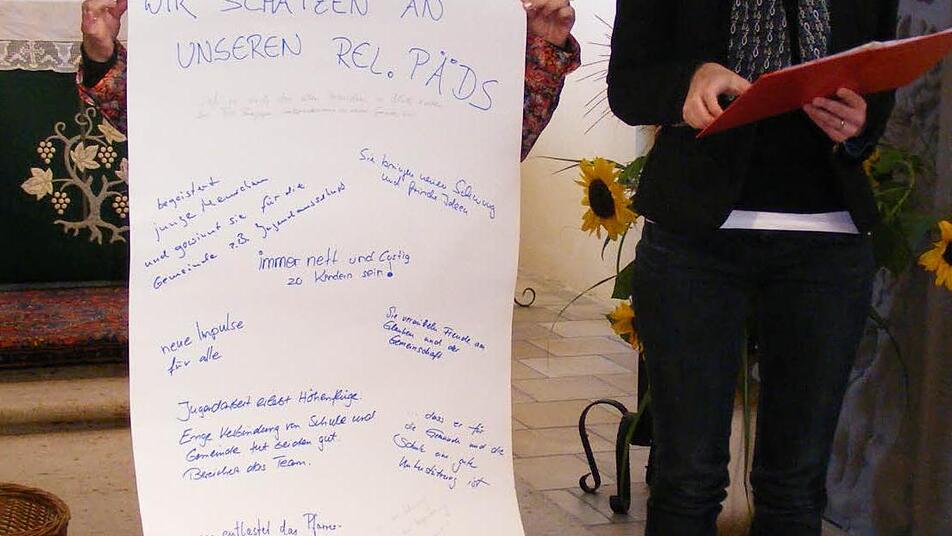 WIR SCHÄTZEN AN
UNSEREN REL. PÄDS
begeistert
junge Menschen
und gewinnt sie für die
Gemeinde z.B. Jugendausschuss
Sie bringen neuen Schwung
und frische Ideen
immer nett und Lystig
zo Kindern sein!
neue Impulse
für alle
Sie vermitteln Freude am
Glauben und der
Gemeinschaft
Jugendarbeit erlebt Höhenflüge.
Enge Verbindung von Schule und
Gemeinde tut beiden gut.
Bereichern das Team.
... dass er für
die Gemeinde und die
Schule eine gute
Unterstützung ist
entlastet das Pfarr-